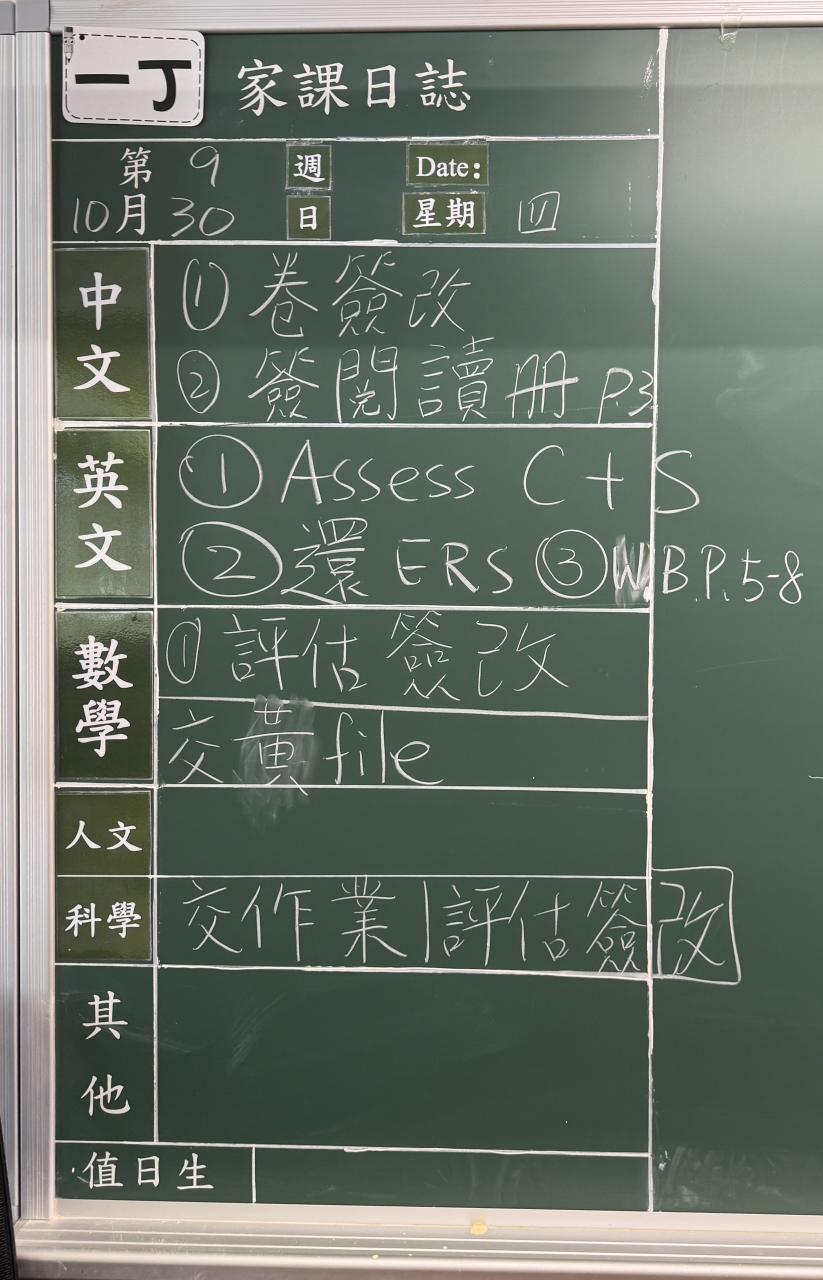 一丁 家課日誌
第 9 週 Date:
10月 30 日 星期 四
中文
① 卷簽改
② 簽閱讀册 P.3
英文
① Assess C + S
② 還 ERS ③ W.B.P. 5-8
數學
① 評估簽改
交黃file
人文
科學 交作業 | 評估簽改
其他
值日生